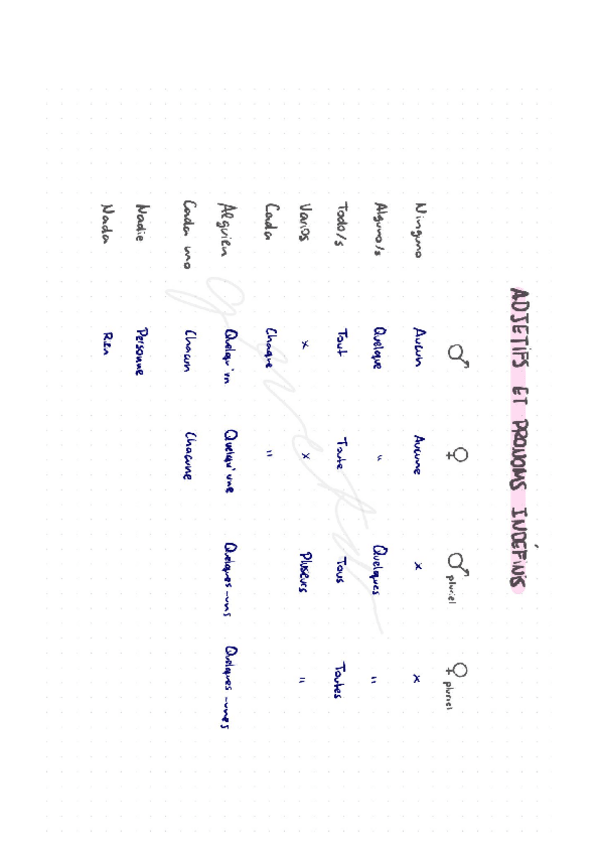 ADJETIFS ET PRONOMS INDÉFINIS
♂ ♀ ♂ pluriel ♀ pluriel
Ninguno Aucun Aucune x x
Alguno/s Quelque " Quelques "
Todo/s Tout Toute Tous Toutes
Varios x x Plusieurs "
Cada Chaque "
Alguien Quelqu'un Quelqu'une Quelques-uns Quelques-unes
Cada uno Chacun Chacune
Nadie Personne
Nada Rien